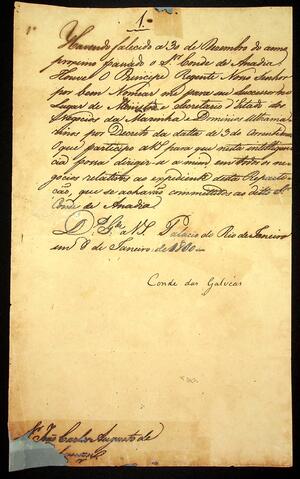 1.
Havendo falecido a 30 de Dezembro do anno
proximo passado o Sr. Conde de Anadia
Houve O Principe Regente Nosso Senhor
por bem Nomear me para seu Successor no
Lugar de Ministro e Secretario d'Estado dos
Negocios da Marinha e Dominios Ultrama-
rinos por Decreto da data de 3 do corrente
O que participo a VS. para que nesta intelligen-
cia possa dirigir a mim em todos os ne-
gocios relativos ao expediente desta Reparti-
ção, que se achavão commettidos ao dito Sr.
Conde de Anadia.
Ds. Gde. a VS. Palacio do Rio de Janeiro
em 8 de Janeiro de
Conde das Galvêas
Sr. João Carlos Augusto de